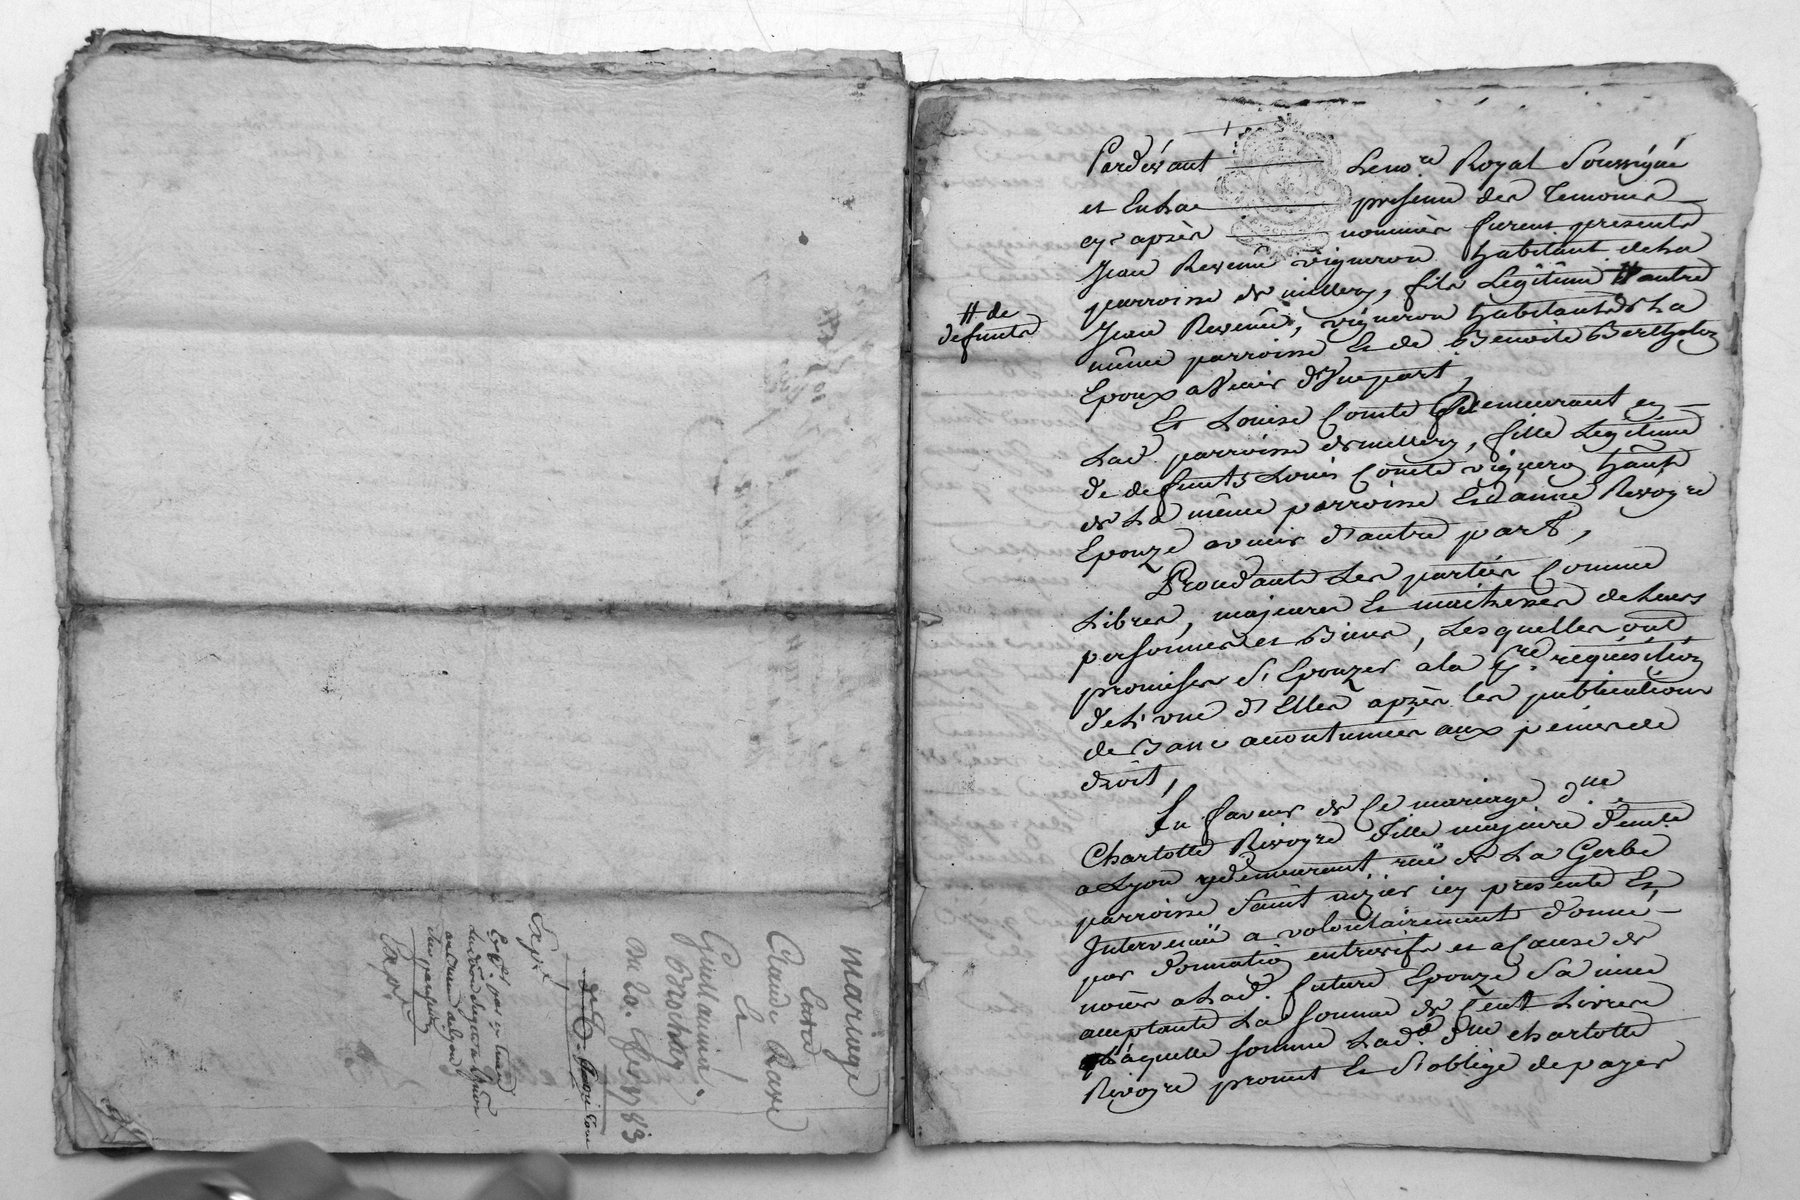 mariage
Entre
Claude Rave
Et
Guillaumine
Brochay
Du 20. 1783
Expé
Lapo
Pardevant Le no.re Royal Soussigné
et En La presence des Temoins
cy-après nommés furent presents
Jean Revenu vigneron habitant de La
parroisse de millery, fils Legitime # autre
# de
defunts
Jean Revenu, vigneron habitants de La
même parroisse Et de Benoite Bertholon
Epoux a Venir d'Une part,
Et Louise Comte Demeurant en
Lad. parroisse de millery, fille Legitime
de defunts Louis Comte vigneron hant
de La même parroisse Et d'anne Revoyre
Epouze avenir d'autre part,
Procédants Les parties Comme
Libres, majeures Et maitresses de Leurs
personnes et Biens, Lesquelles ont
promises S'Epouzer a la p.re requisition
de L'une d'Elles après les publications
de Banc acoutumées aux peines de
droit,
En faveur de Ce mariage d.lle
Charlotte Rivoyre fille majeure d'ente
a Lyon y demeurant rüe de La Gerbe
parroisse Saint nizier icy presente Et
Intervenüe a volontairement donné
par donnation entrevifs et a Cause de
noces a Lad. future Epouze Sa niece
acceptante La Somme de Cent Livres
Laquelle somme Lad. d.lle Charlotte
Rivoyre promet Et S'oblige de payer